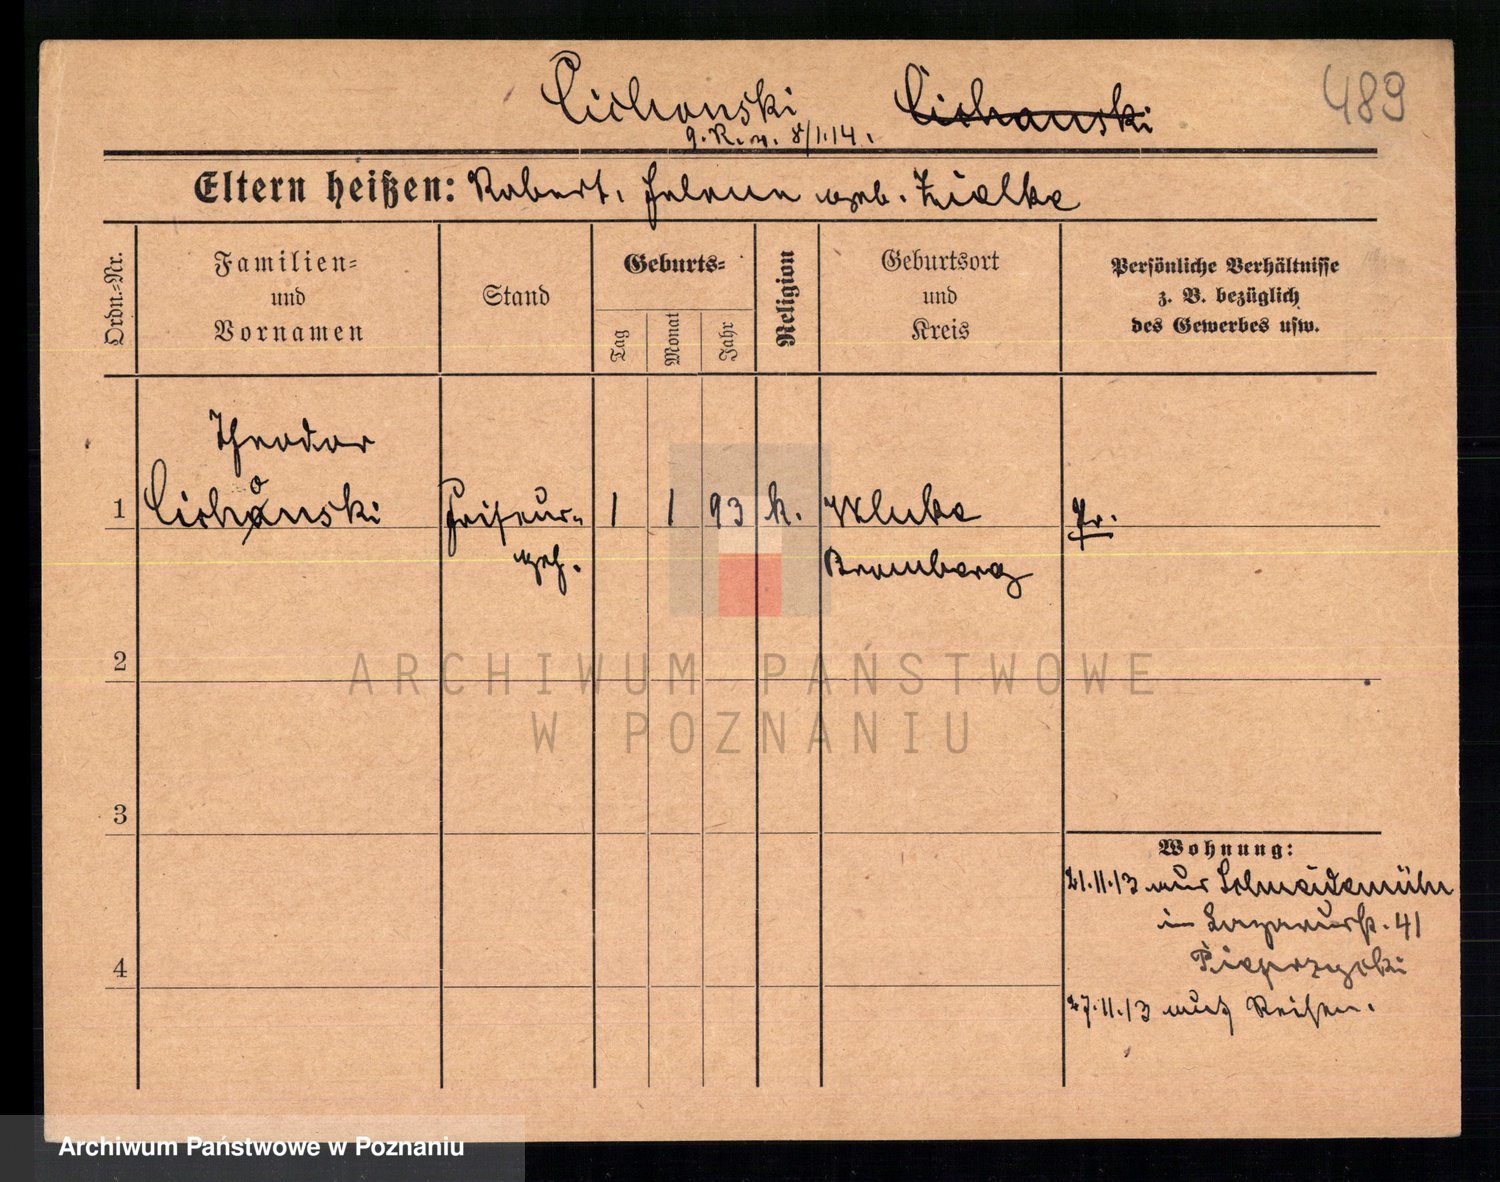 Cichonski Cichanski 489
g. R. v. 8/1.14.
Eltern heißen: Robert, Helene geb. Zielke
Ordn.-Nr.
Familien- und Vornamen
Stand
Geburts-
Tag
Monat
Jahr
Religion
Geburtsort und Kreis
Persönliche Verhältnisse
z. B. bezüglich
des Gewerbes usw.
Theodor
1 Cichonski Friseur- 1 1 93 k. Pr.
geh. Bromberg
2
3
4
Wohnung:
21.11.13 aus Schneidemühl
in Lazarusstr. 41
Pieprzycki
27.11.13 auf Reisen.
ARCHIWUM PAŃSTWOWE
W POZNANIU
Archiwum Państwowe w Poznaniu